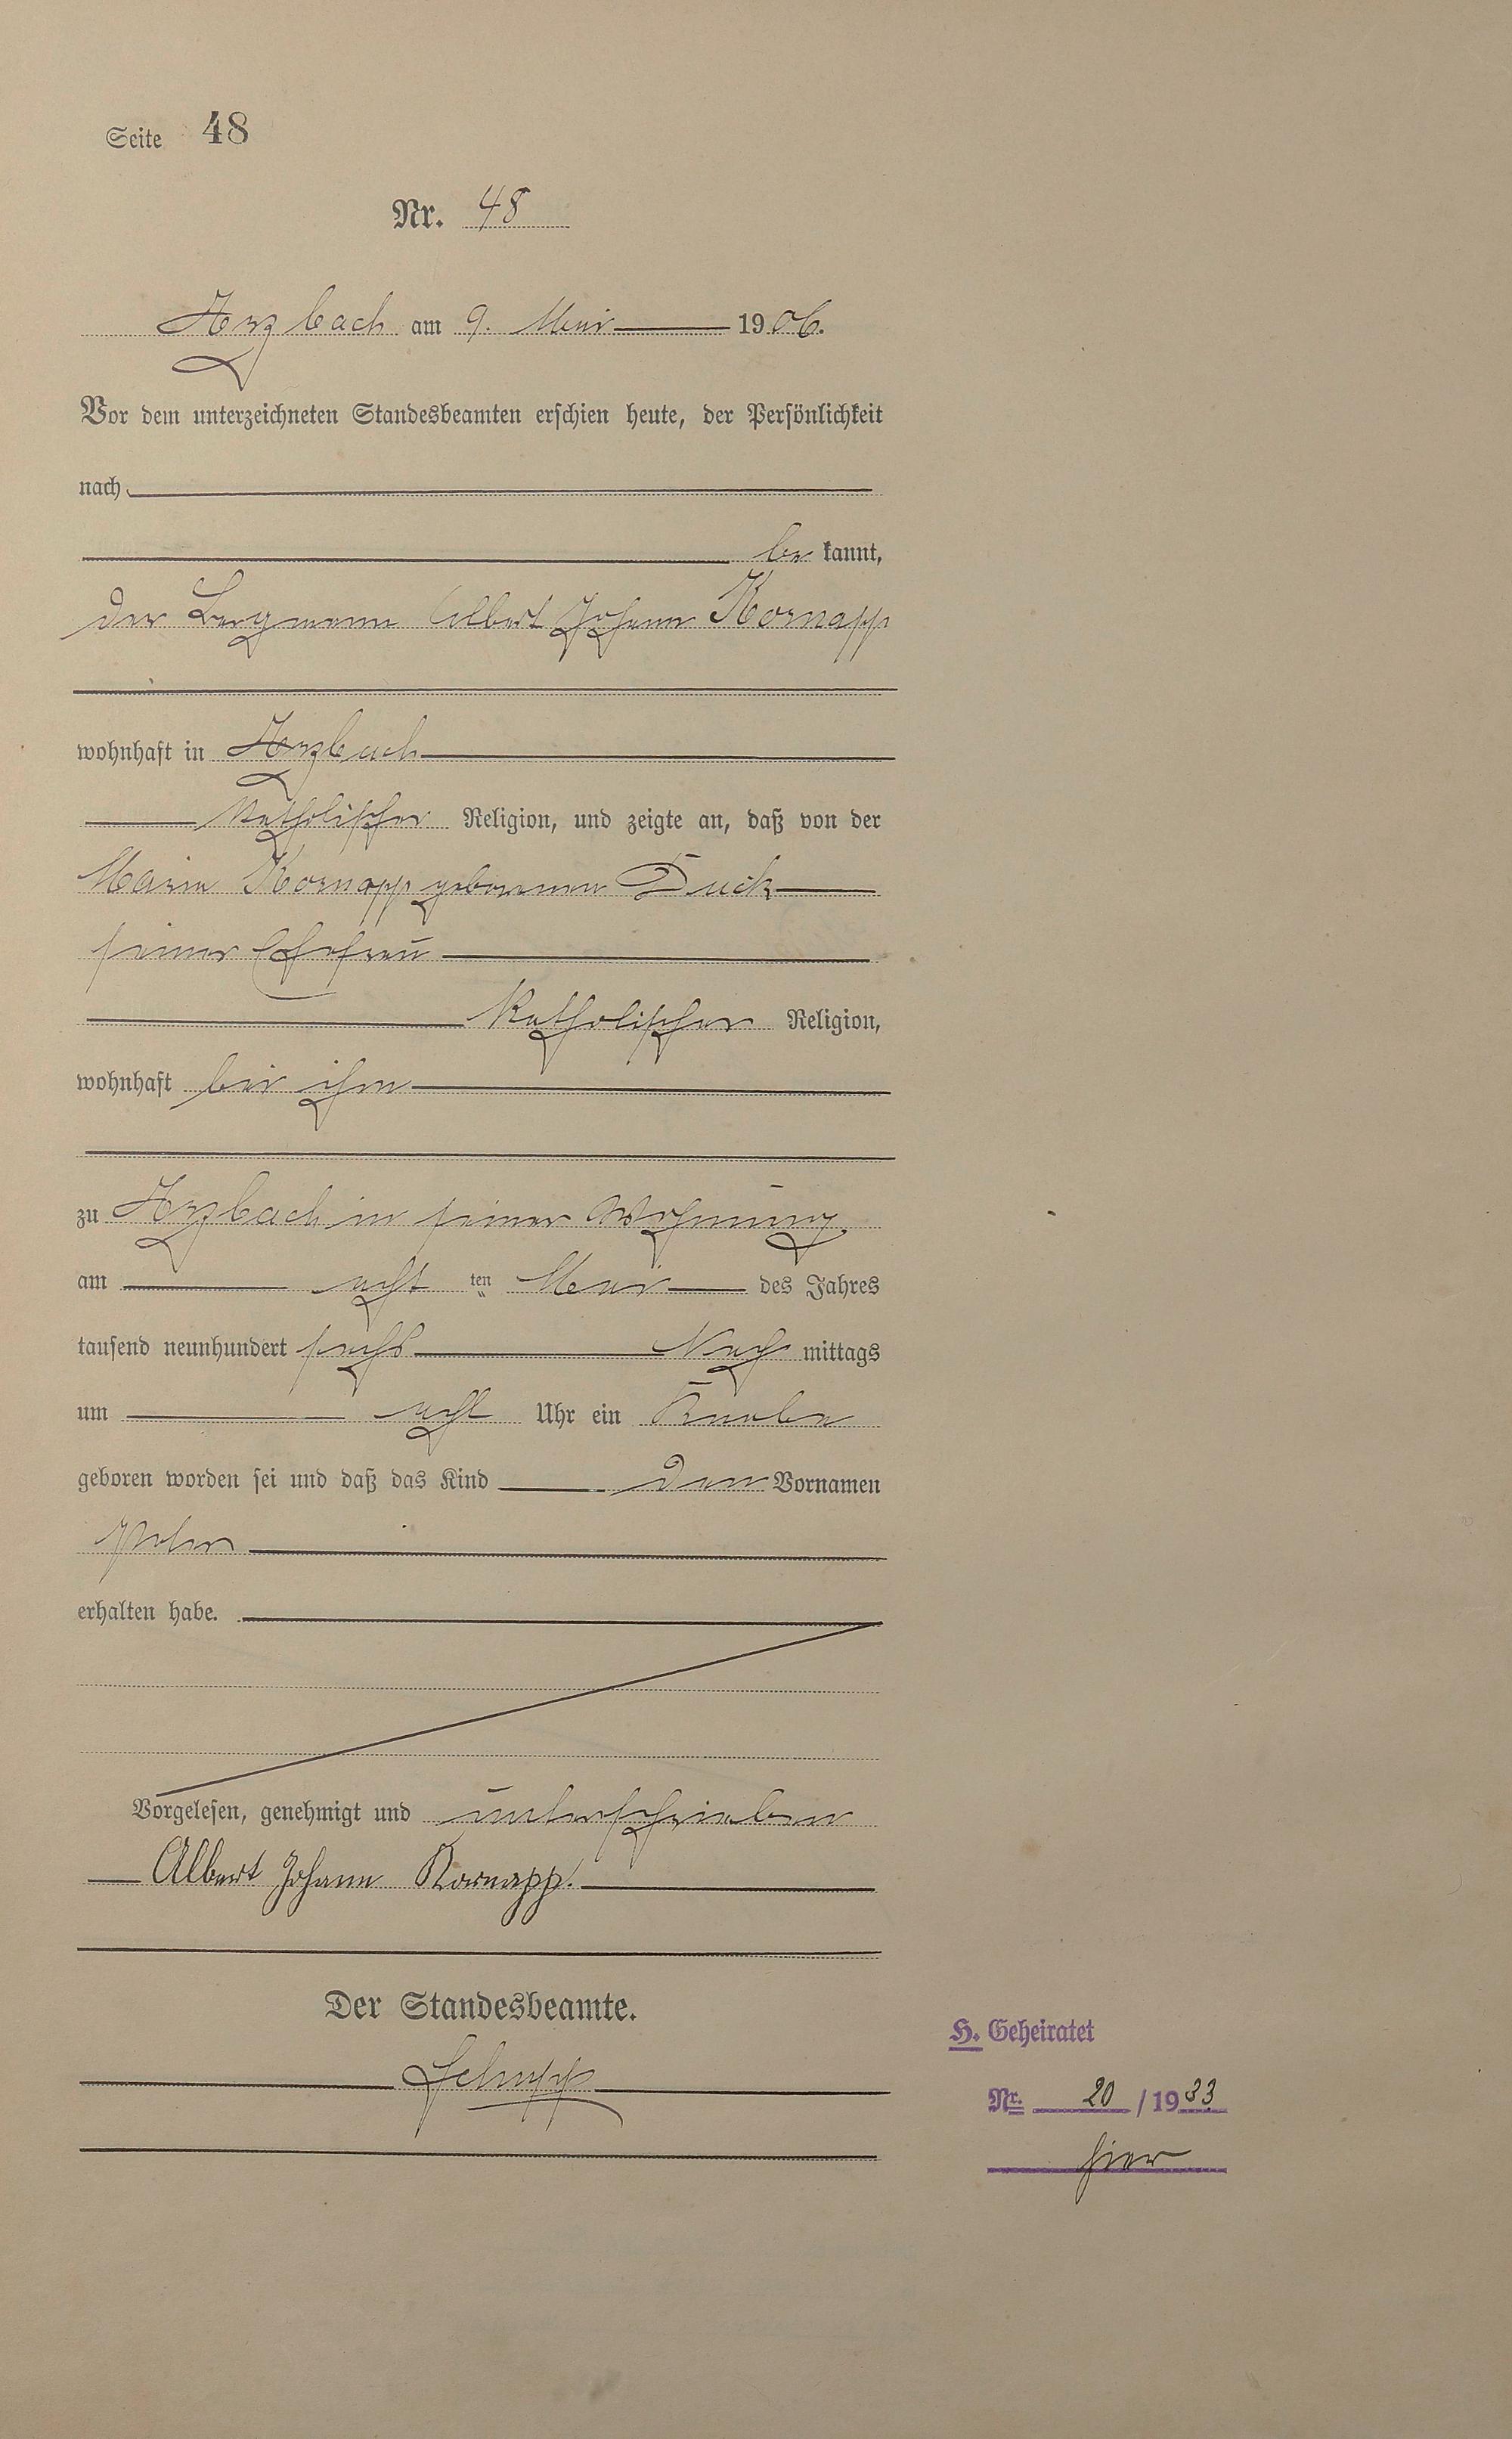 Seite 48
Nr. 48
Arzbach am 9. Mai 1906.
Vor dem unterzeichneten Standesbeamten erschien heute, der Persönlichkeit
nach
be kannt,
der Bergmann Albert Johann Kornapp
wohnhaft in Arzbach
katholischer Religion, und zeigte an, daß von der
Maria Kornapp geborenen Duck
seiner Ehefrau
katholischer Religion,
wohnhaft bei ihm
zu Arzbach in seiner Wohnung
am acht ten Mai des Jahres
tausend neunhundert sechs Nach mittags
um acht Uhr ein Knabe
geboren worden sei und daß das Kind den Vornamen
Peter
erhalten habe.
Vorgelesen, genehmigt und unterschrieben
Albert Johann Kornapp.
Der Standesbeamte.
H. Geheiratet
Nr. 20 / 1933
hier